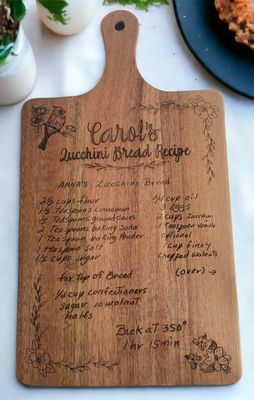 Carol's
Zucchini Bread Recipe
ANNA'S Zucchini Bread
2½ cups flour
1½ Teaspoons Cinnamon
½ Teaspoons ground Cloves
2 Teaspoons baking Soda
1 Tea Spoon baking Powder
1 teaspoon Salt
1½ cups sugar
¾ cup oil
3 eggs
2 cups Zucchini
1 teaspoon Vanilla
optional
1 cup finely
Chopped Walnuts
(over) →
for Top of Bread
¼ cup confectioners
Sugar 10 walnut
halfs
Back aT 350°
1 hr 15 min